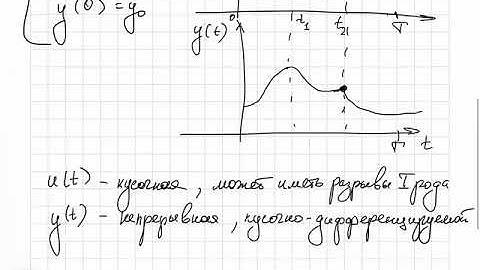 y(0) = y₀
0 t₁ t₂ T
y(t)
T t
u(t) – кусочная, может иметь разрывы I рода
y(t) – непрерывная, кусочно-дифференцируемой